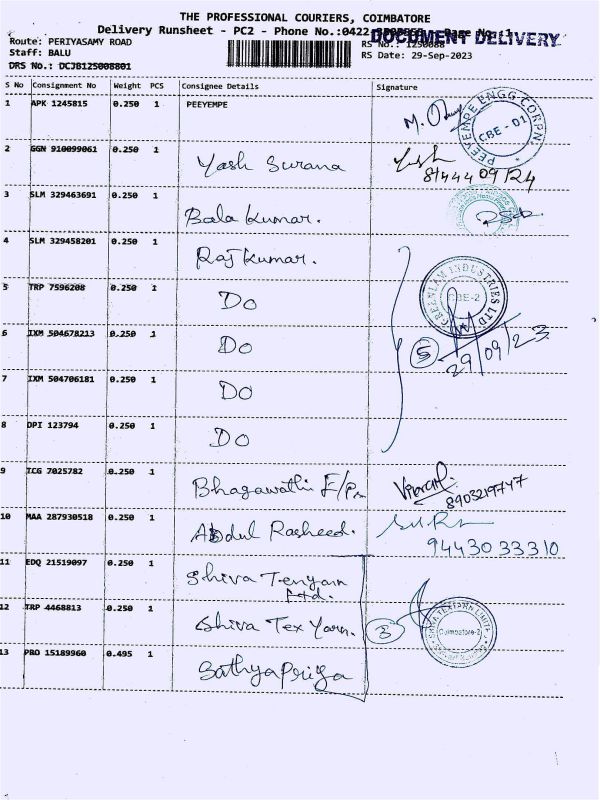 THE PROFESSIONAL COURIERS, COIMBATORE
Delivery Runsheet - PC2 - Phone No.:0422 Page No.:1
DOCUMENT DELIVERY
Route: PERIYASAMY ROAD RS No.: 1250088
Staff: BALU RS Date: 29-Sep-2023
DRS No.: DCJB125008801
S No Consignment No Weight PCS Consignee Details Signature
1 APK 1245815 0.250 1 PEEYEMPE
PEEYEMPE ENGG CORPN CBE - 01
2 GGN 910099061 0.250 1 Yash Surana
3 SLM 329463691 0.250 1 Bala Kumar.
4 SLM 329458201 0.250 1 Raj Kumar.
5 TRP 7596208 0.250 1 Do
GREENLAM INDUSTRIES LTD CBE-2
6 IXM 504678213 0.250 1 Do
5 29/09/23
7 IXM 504706181 0.250 1 Do
8 DPI 123794 0.250 1 Do
9 TCG 7025782 0.250 1 Bhagawathi
8903219747
10 MAA 287930518 0.250 1 Abdul Rasheed.
9443033310
11 EDQ 21519097 0.250 1 Shiva Texyarn Ltd.
12 TRP 4468813 0.250 1 Shiva Tex Yarn. 3
Coimbatore-2
13 PRO 15189960 0.495 1 Sathyapriya